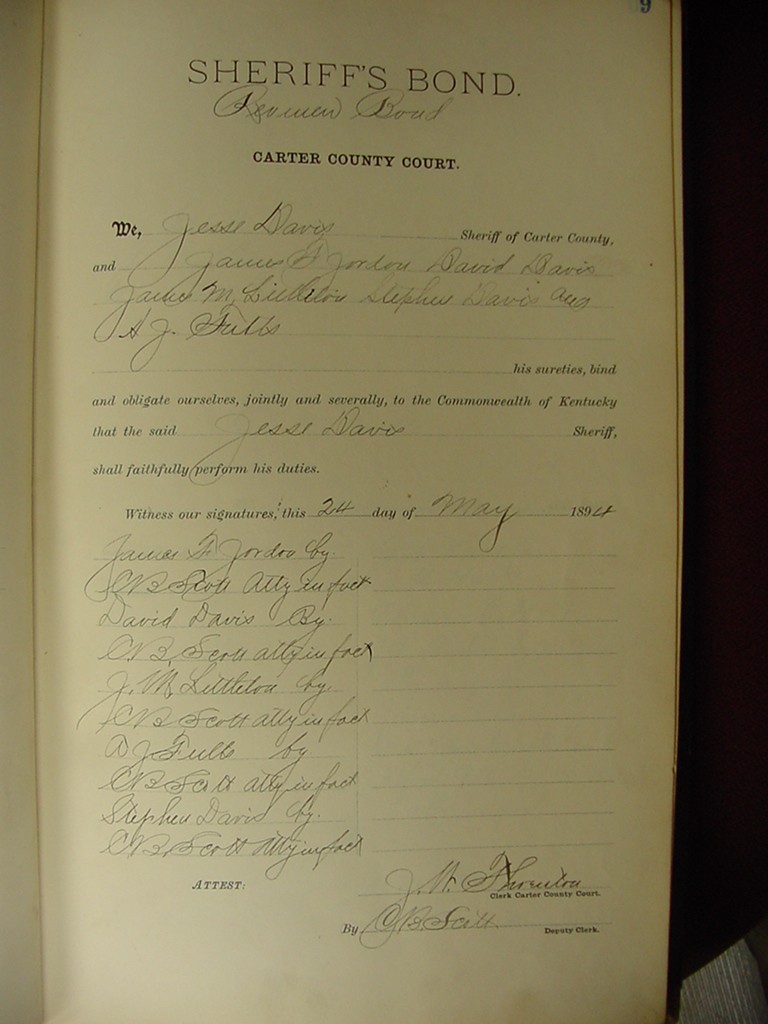 9
SHERIFF'S BOND.
Revenue Bond
CARTER COUNTY COURT.
We, Jesse Davis Sheriff of Carter County,
and James F Jordon David Davis
James M, Littleton Stephen Davis and
A J. Fults
his sureties, bind
and obligate ourselves, jointly and severally, to the Commonwealth of Kentucky
that the said Jesse Davis Sheriff,
shall faithfully perform his duties.
Witness our signatures, this 24 day of May 1894
James F. Jordon by
CB Scott Atty in fact
David Davis By.
C.B. Scott atty in fact
J. M, Littleton by
CB Scott atty in fact
A J Fults by
CB Scott atty in fact
Stephen Davis by.
C.B. Scott Atty in fact
ATTEST:
J. W. Thornton
Clerk Carter County Court.
By C.B. Scott Deputy Clerk.